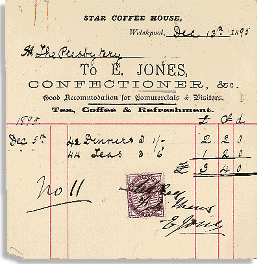 STAR COFFEE HOUSE,
Welshpool, Dec 13th 1895
The Presbytery
To E. JONES,
CONFECTIONER, &c.
Good Accommodation for Commercials & Visitors.
Tea, Coffee & Refreshment.
1895 £ s d
Dec 5th 42 Dinners @ 1/- 2 2 0
44 Teas @ 6 1 2 0
£ 3 4 0
No 11
E Jones